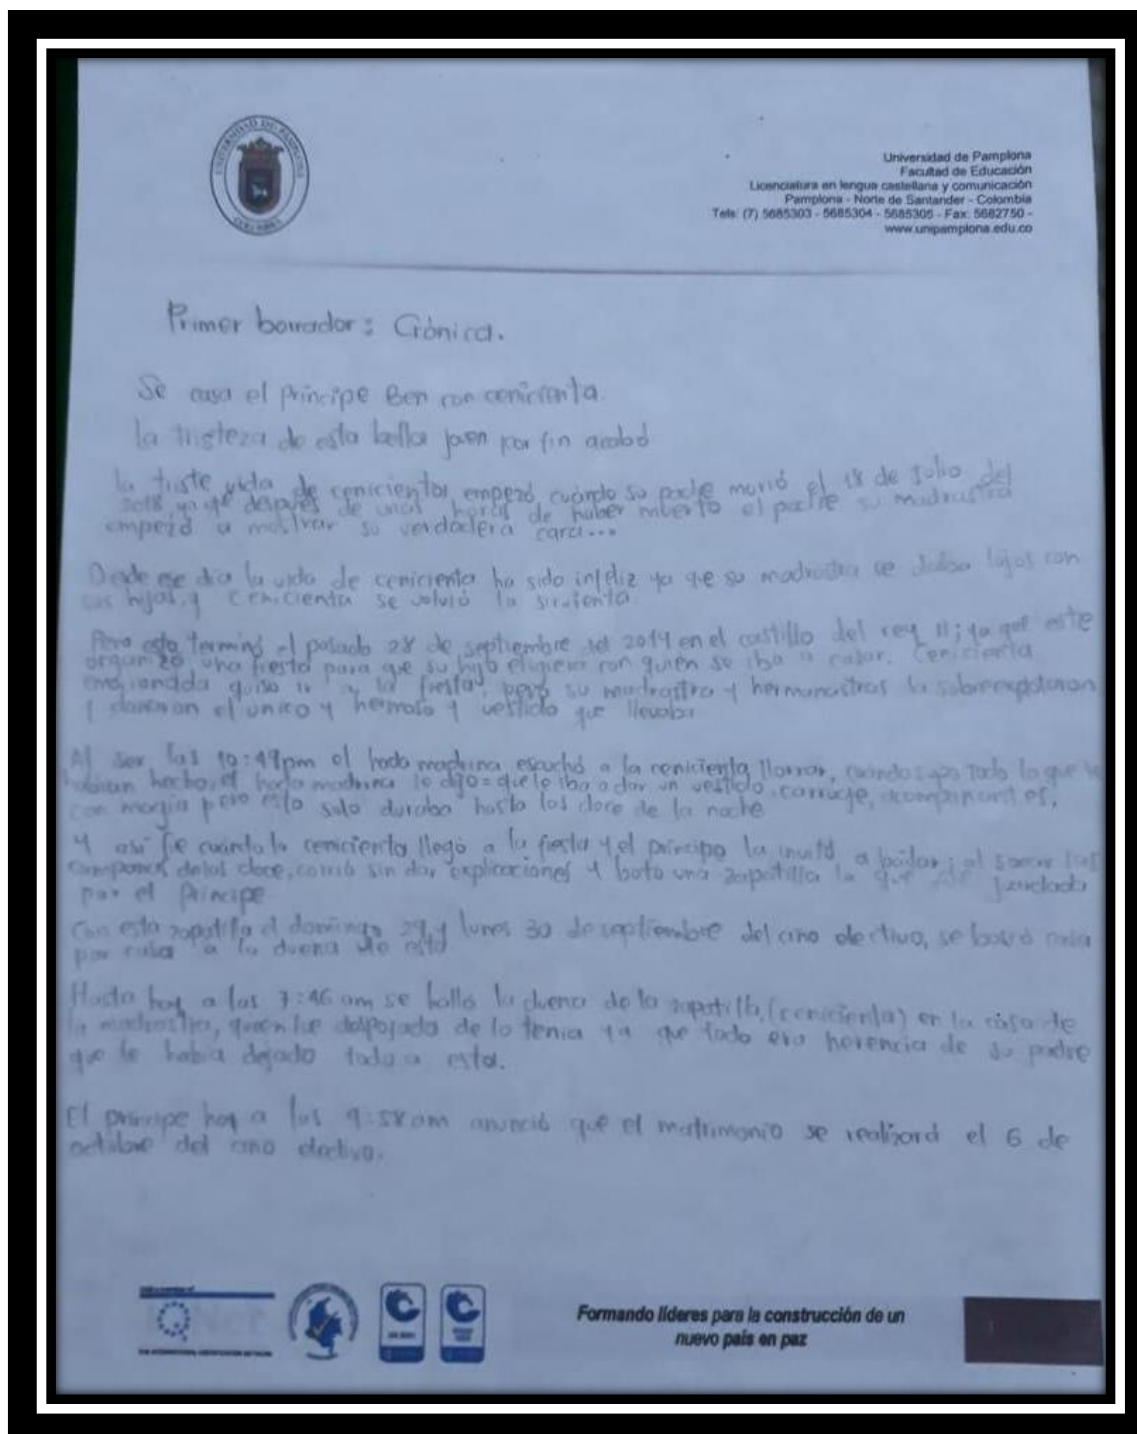 UNIVERSIDAD DE PAMPLONA
COLOMBIA
Universidad de Pamplona
Facultad de Educación
Licenciatura en lengua castellana y comunicación
Pamplona - Norte de Santander - Colombia
Tels: (7) 5685303 - 5685304 - 5685305 - Fax: 5682750 -
www.unipamplona.edu.co
Primer borrador: Crónica.
Se casa el príncipe Ben con cenicienta.
la tristeza de esta bella joven por fin acabó
la triste vida de cenicienta, empezó cuándo su padre morió el 18 de Julio del
2018 ya que después de unas horas de haber muerto el padre su madrastra
empezó a mostrar su verdadera cara...
Desde ese día la vida de cenicienta ha sido infeliz ya que su madrastra se daba lujos con
sus hijas, y cenicienta se volvió la sirvienta.
Pero esto terminó el pasado 28 de septiembre del 2019 en el castillo del rey 11; ya que este
organizó una fiesta para que su hijo eligiera con quién se iba a casar. Cenicienta
quiso ir a la fiesta, pero su madrastra y hermanastras la
y dañaron el único y hermoso y vestido que llevaba
Al ser las 10:49pm el hada madrina escuchó a la cenicienta llorrar, todo lo que le
habían hecho, el hada madrina le dijo= que le iba a dar un vestido, carruaje,
con magia pero esto solo duraba hasta las doce de la noche
Y así fue cuándo la cenicienta llegó a la fiesta y el príncipe la invitó a bailar; al sonar las
campanas delas doce, corrió sin dar explicaciones y boto una zapatilla la que fue
por el Príncipe
Con esta zapatilla el domingo 29 y lunes 30 de septiembre del ano electivo, se buscó casa
por casa a la duena de esta
Hasta hoy a las 7:46 am se halló la duena de la zapatilla, (cenicienta) en la casa de
la madrastra, quien fue despojada de lo tenia ya que todo era herencia de su padre
que le había dejado todo a esta.
El príncipe hoy a las 9:58am anunció que el matrimonio se realizará el 6 de
octubre del ano electivo.
Formando líderes para la construcción de un
nuevo país en paz